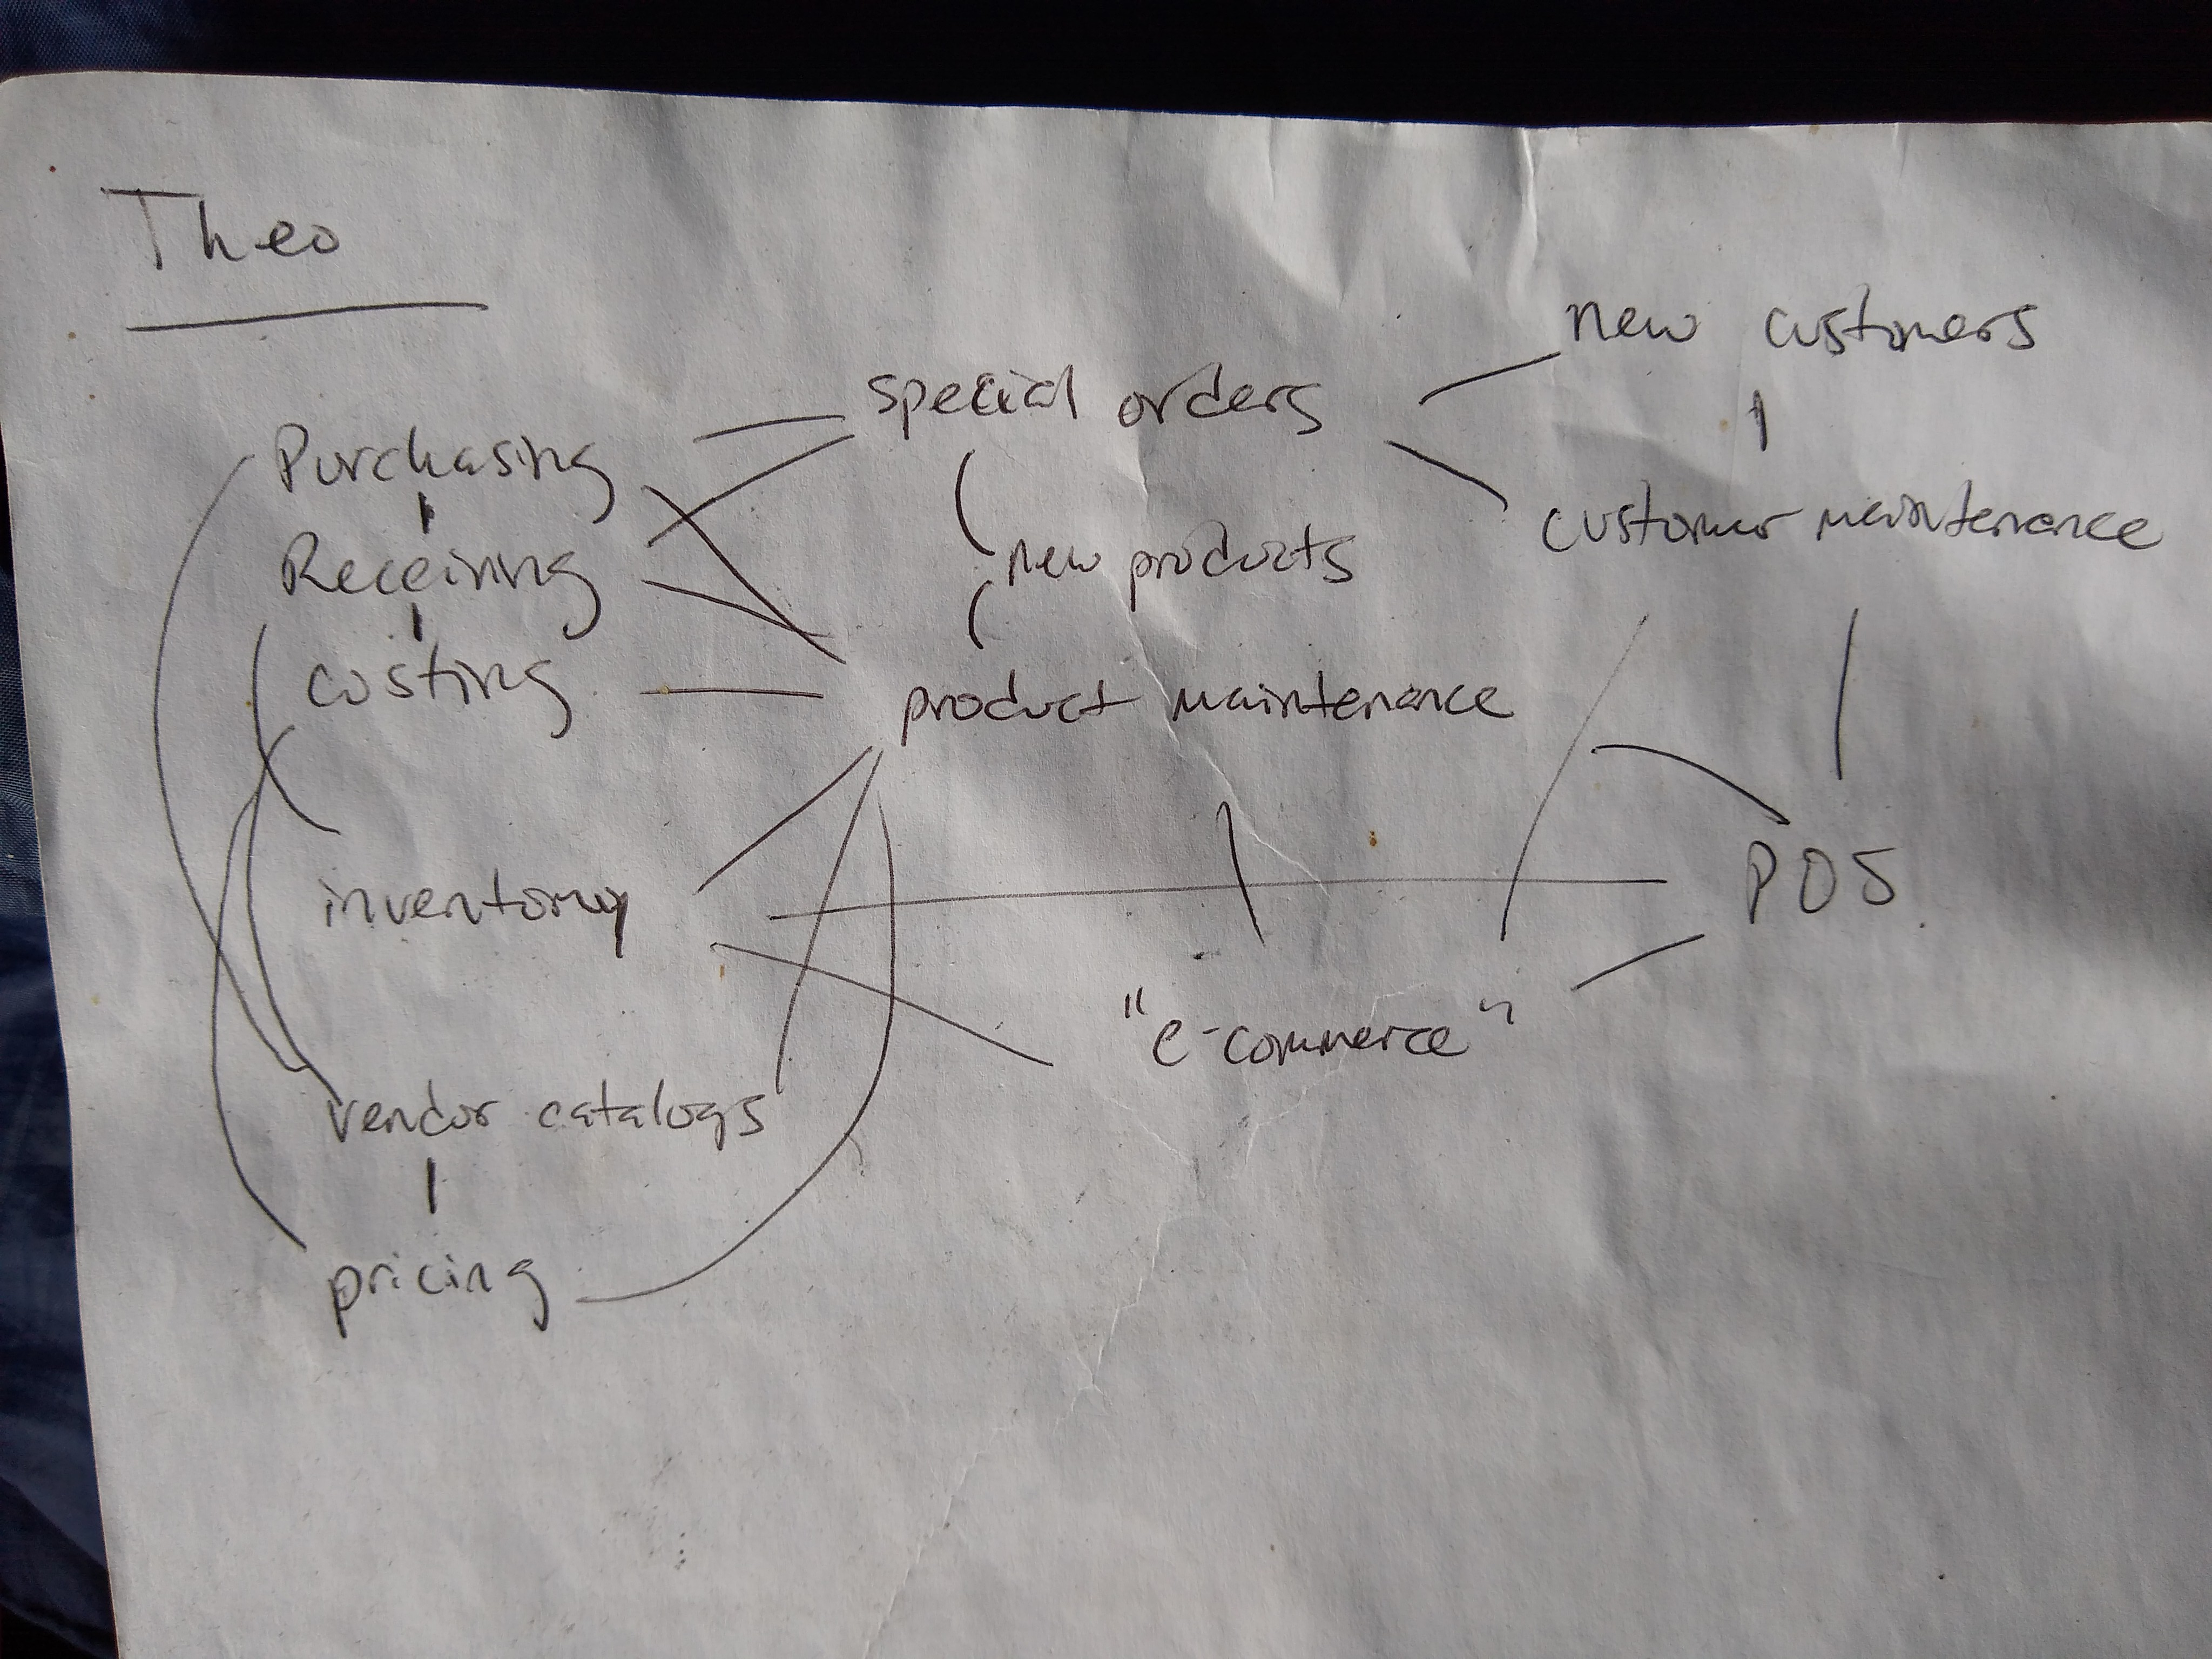 Theo
new customers
special orders
Purchasing
customer maintenance
Receiving
new products
costing
product maintenance
inventory
POS
"e-commerce"
vendor catalogs
pricing